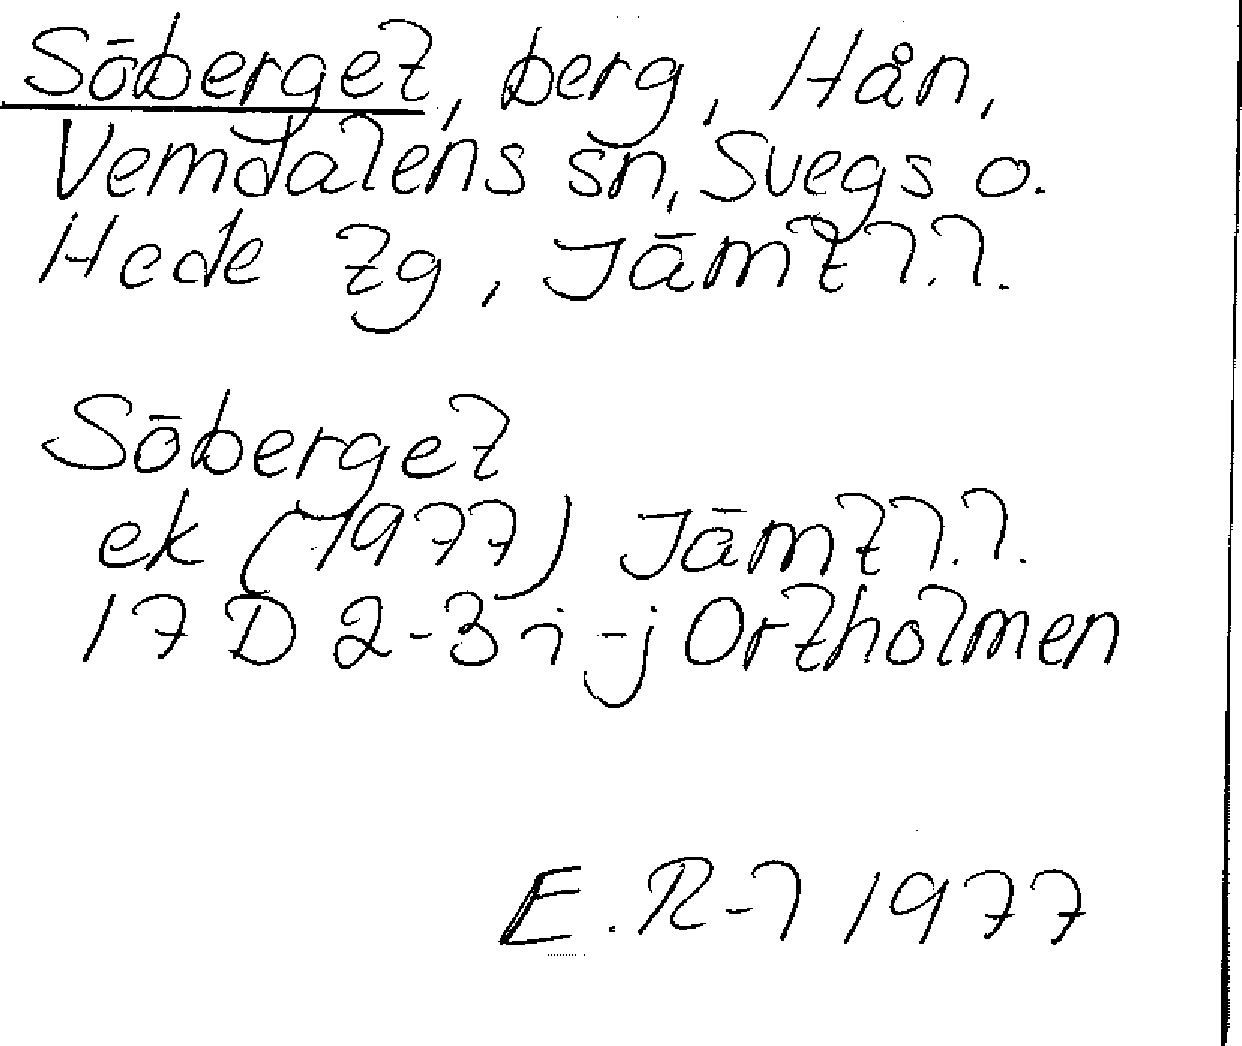 Söberget, berg, Hån,
Vemdalens sn, Svegs o.
Hede tg, Jämtl.l.
Söberget
ek (1977) Jämtl.l.
17 D 2-3 i-j Ortholmen
E. R-l 1977